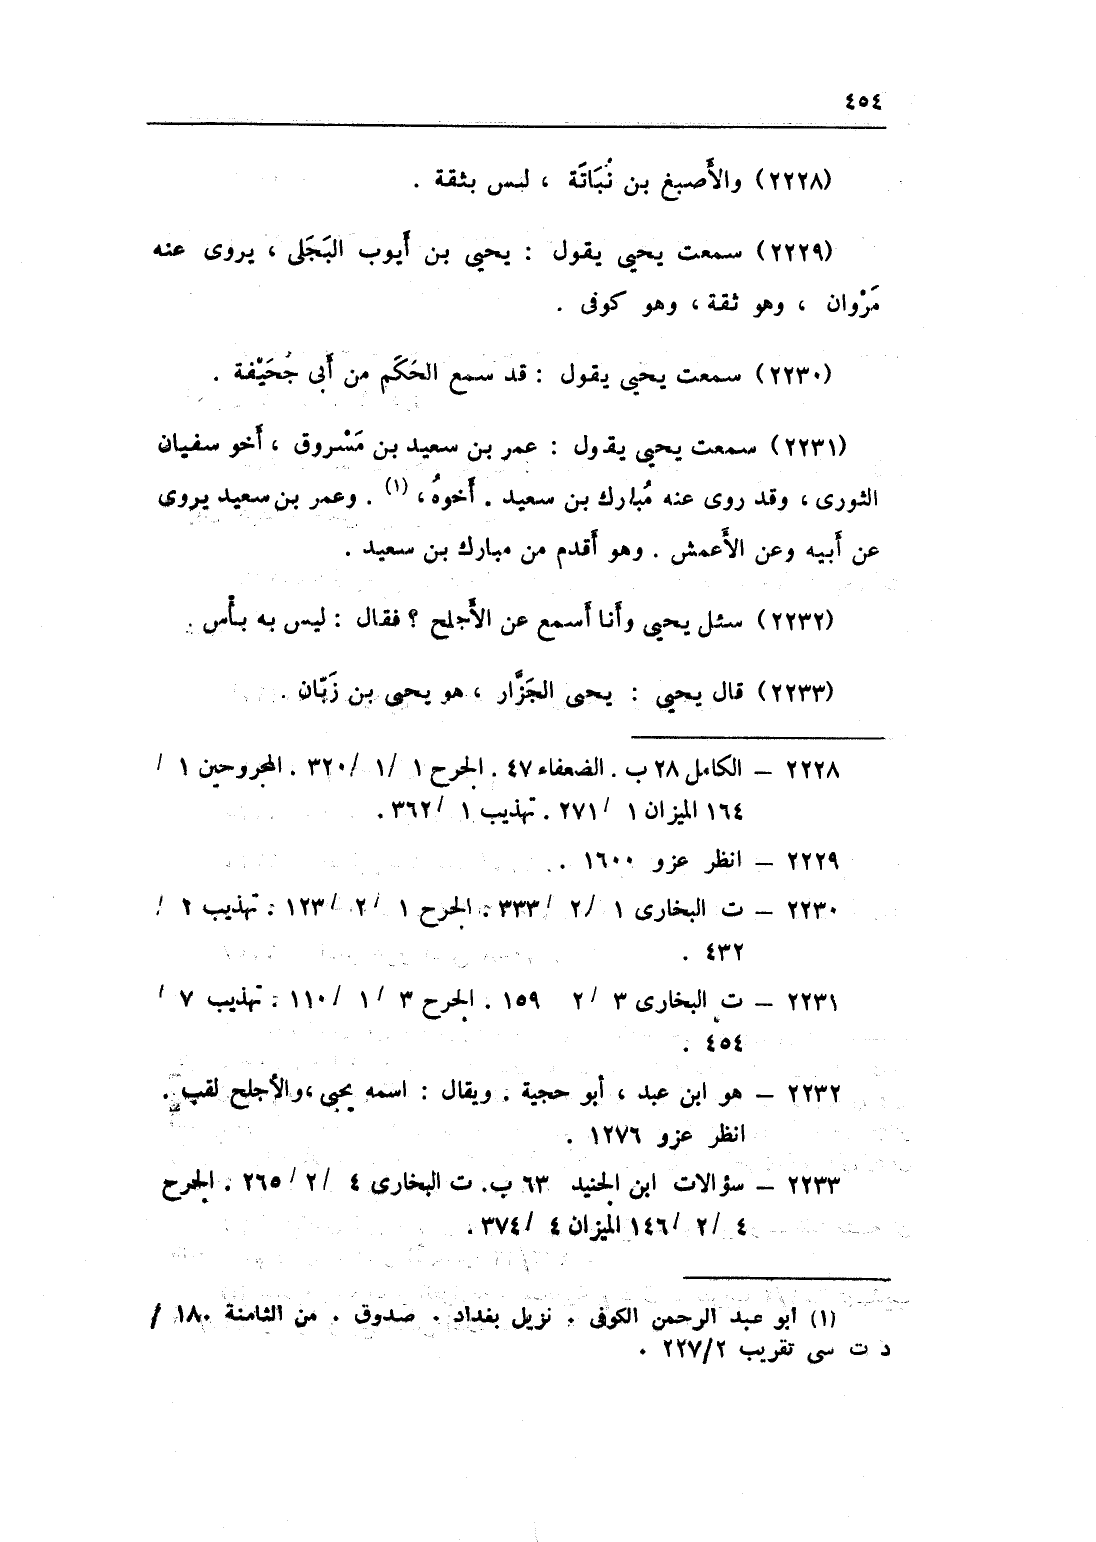 ٤٥٤
(٢٢٢٨) والأَصبغ بن نُبَاتَة ، ليس بثقة .
(٢٢٢٩) سمعت يحيى يقول : يحيى بن أَيوب البَجَلى ، يروى عنه
مَرْوان ، وهو ثقة ، وهو كوفى .
(٢٢٣٠) سمعت يحيى يقول : قد سمع الحَكَم من أَبى جُحَيْفة .
(٢٢٣١) سمعت يحيى يقول : عمر بن سعيد بن مَسْروق ، أَخو سفيان
الثورى ، وقد روى عنه مُبارك بن سعيد . أَخوهُ ، (١) . وعمر بن سعيد يروى
عن أَبيه وعن الأَعمش . وهو أَقدم من مبارك بن سعيد .
(٢٢٣٢) سئل يحيى وأَنا أَسمع عن الأَجلح ؟ فقال : ليس به بأْس .
(٢٢٣٣) قال يحيى : يحيى الجَزَّار ، هو يحيى بن زَبّان .
٢٢٢٨ – الكامل ٢٨ ب . الضعفاء ٤٧ . الجرح ١ /١ /٣٢٠ . المجروحين ١ /
١٦٤ الميزان ١ /٢٧١ . تهذيب ١ /٣٦٢ .
٢٢٢٩ – انظر عزو ١٦٠٠ .
٢٢٣٠ – ت البخارى ١ /٢ /٣٣٣ . الجرح ١ /٢ /١٢٣ . تهذيب ٢ /
٤٣٢ .
٢٢٣١ – ت البخارى ٣ /٢ ١٥٩ . الجرح ٣ /١ /١١٠ . تهذيب ٧ /
٤٥٤ .
٢٢٣٢ – هو ابن عبد ، أبو حجية . ويقال : اسمه يحيى ، والأجلح لقب .
انظر عزو ١٢٧٦ .
٢٢٣٣ – سؤالات ابن الجنيد ٦٣ ب. ت البخارى ٤ /٢ /٢٦٥ . الجرح
٤ /٢ /١٤٦ الميزان ٤ /٣٧٤ .
(١) ابو عبد الرحمن الكوفى . نزيل بغداد . صدوق . من الثامنة ١٨٠ /
د ت سى تقريب ٢/٢٢٧ .